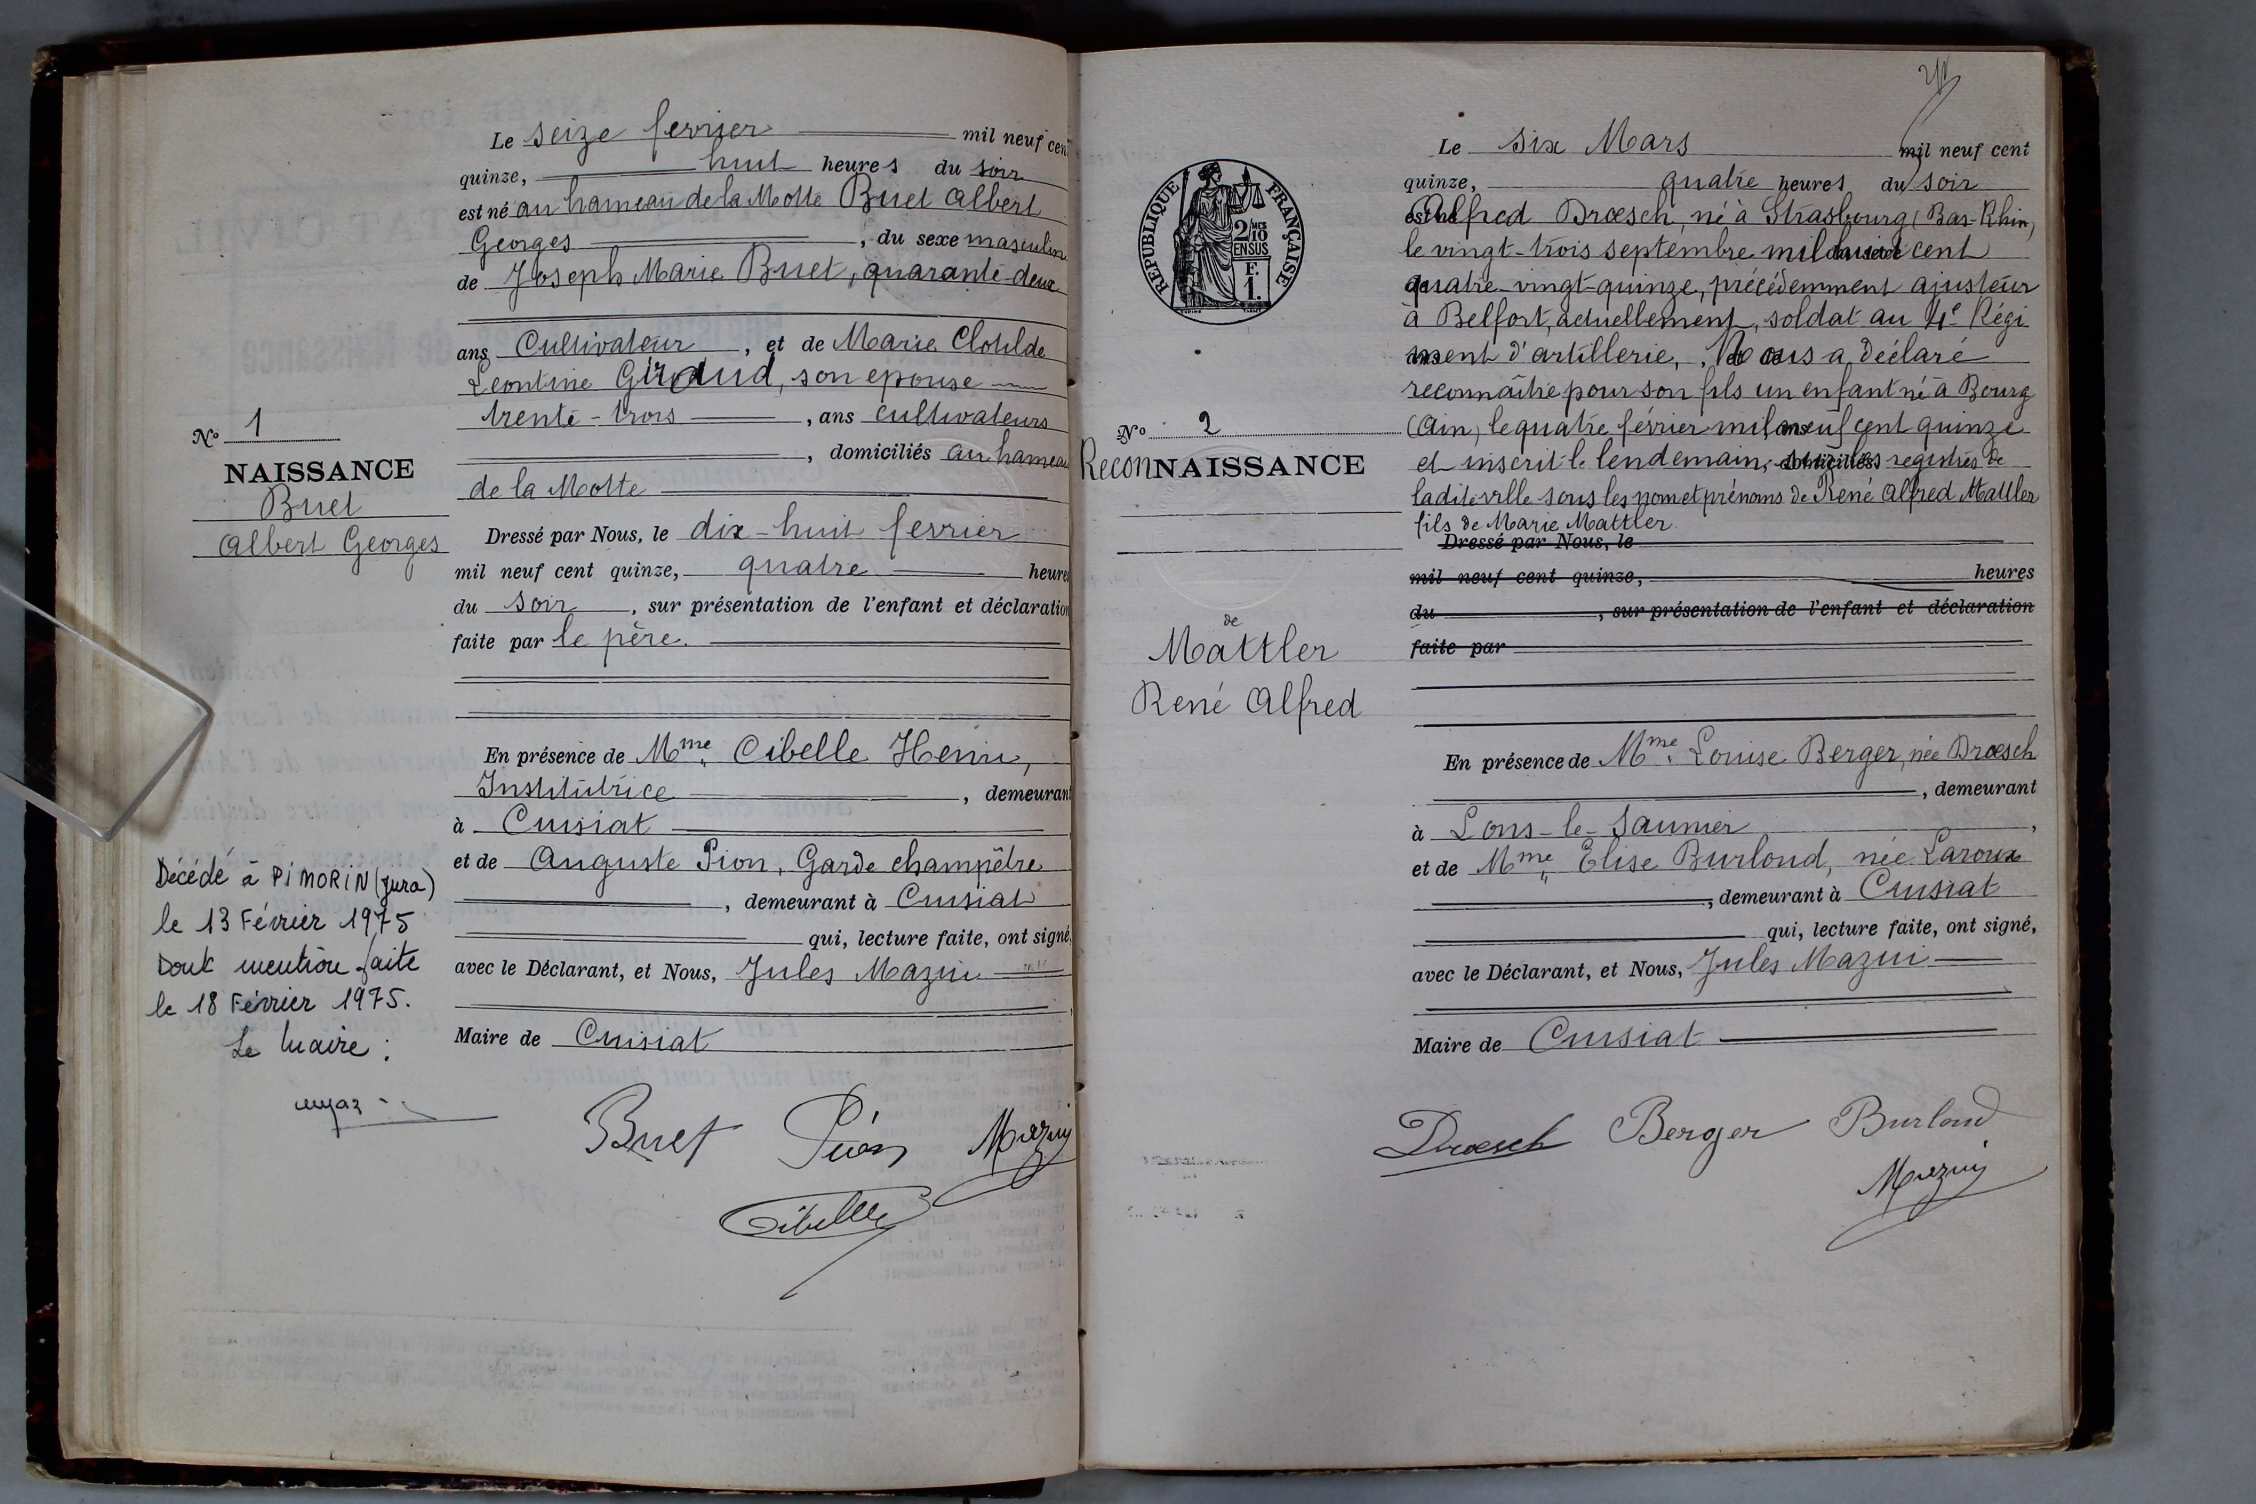 Le seize fevrier mil neuf cent
quinze, huit heures du soir
est né au hameau de la Motte Buet Albert
Georges, du sexe masculin
de Joseph Marie Buet, quarante-deux
ans Cultivateur, et de Marie Clotilde
Leontine Giraud, son epouse
trente-trois, ans cultivateurs
, domiciliés au hameau
de la Motte
Dressé par Nous, le dix-huit fevrier
mil neuf cent quinze, quatre heures
du soir, sur présentation de l'enfant et déclaration
faite par le père.
En présence de Mme Cibelle Henri,
Institutrice, demeurant
à Cuisiat
et de Auguste Pion, Garde champêtre
, demeurant à Cuisiat
qui, lecture faite, ont signé,
avec le Déclarant, et Nous, Jules Mazuii
Maire de Cuisiat
Buet Pion Mazuy
Cibelle
No 1
NAISSANCE
Buet
Albert Georges
Décédé à PIMORIN (Jura)
le 13 Février 1975
Dont mention faite
le 18 Février 1975.
Le Maire :
Le six Mars mil neuf cent
quinze, quatre heures du soir
Alfred Drœsch, né à Strasbourg (Bas-Rhin)
le vingt-trois septembre mil huit cent
quatre-vingt-quinze, précédemment ajusteur
à Belfort, actuellement, soldat au 4e Régi
ment d'artillerie, Nous a déclaré
reconnaître pour son fils un enfant né à Bourg
(Ain) le quatre février mil neuf cent quinze
et inscrit le lendemain, sur les registres de
ladite ville sous les nom et prénoms de René Alfred Mattler
fils de Marie Mattler
Dressé par Nous, le
mil neuf cent quinze, heures
du , sur présentation de l'enfant et déclaration
faite par
En présence de Mme Louise Berger, née Drœsch
, demeurant
à Lons-le-Saunier,
et de Mme Elise Burloud, née Laroux
, demeurant à Cuisiat
qui, lecture faite, ont signé,
avec le Déclarant, et Nous, Jules Mazuii
Maire de Cuisiat
Drœsch Berger Burloud
Mazuy
RÉPUBLIQUE FRANÇAISE
2/10 MES
EN SUS
F.
1.
No 2
ReconNAISSANCE
de
Mattler
René Alfred